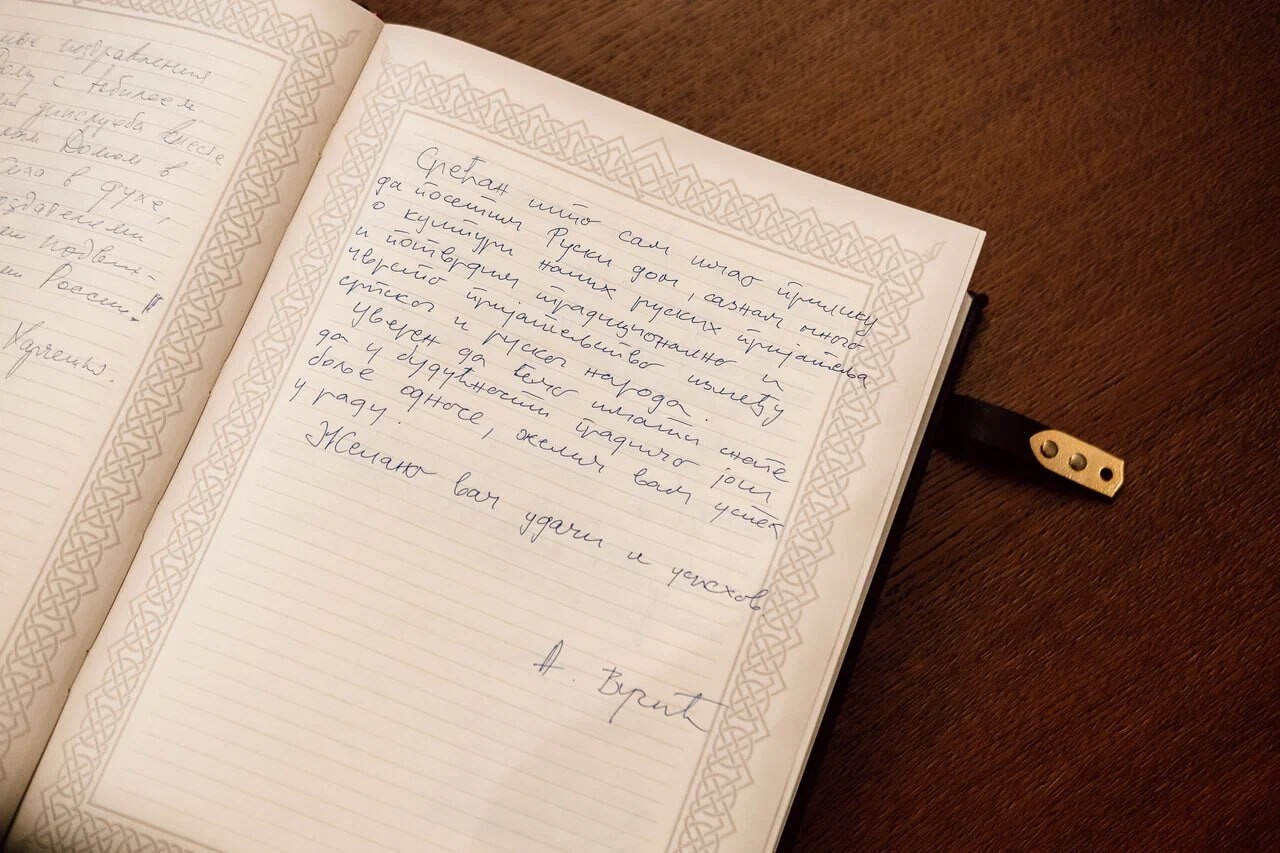 поздравления
с юбилеем
дипслужба вместе
Домом в
в духе,
России!!
Срећан што сам имао прилику
да посетим Руски дом, сазнам много
о култури наших руских пријатеља
и потврдим традиционално и
чврсто пријатељство између
српског и руског народа.
Уверен да ћемо имати снаге
да у будућности градимо још
боље односе, желим вам успех
у раду.
Желаю вам удачи и успехов.
А. Вучић